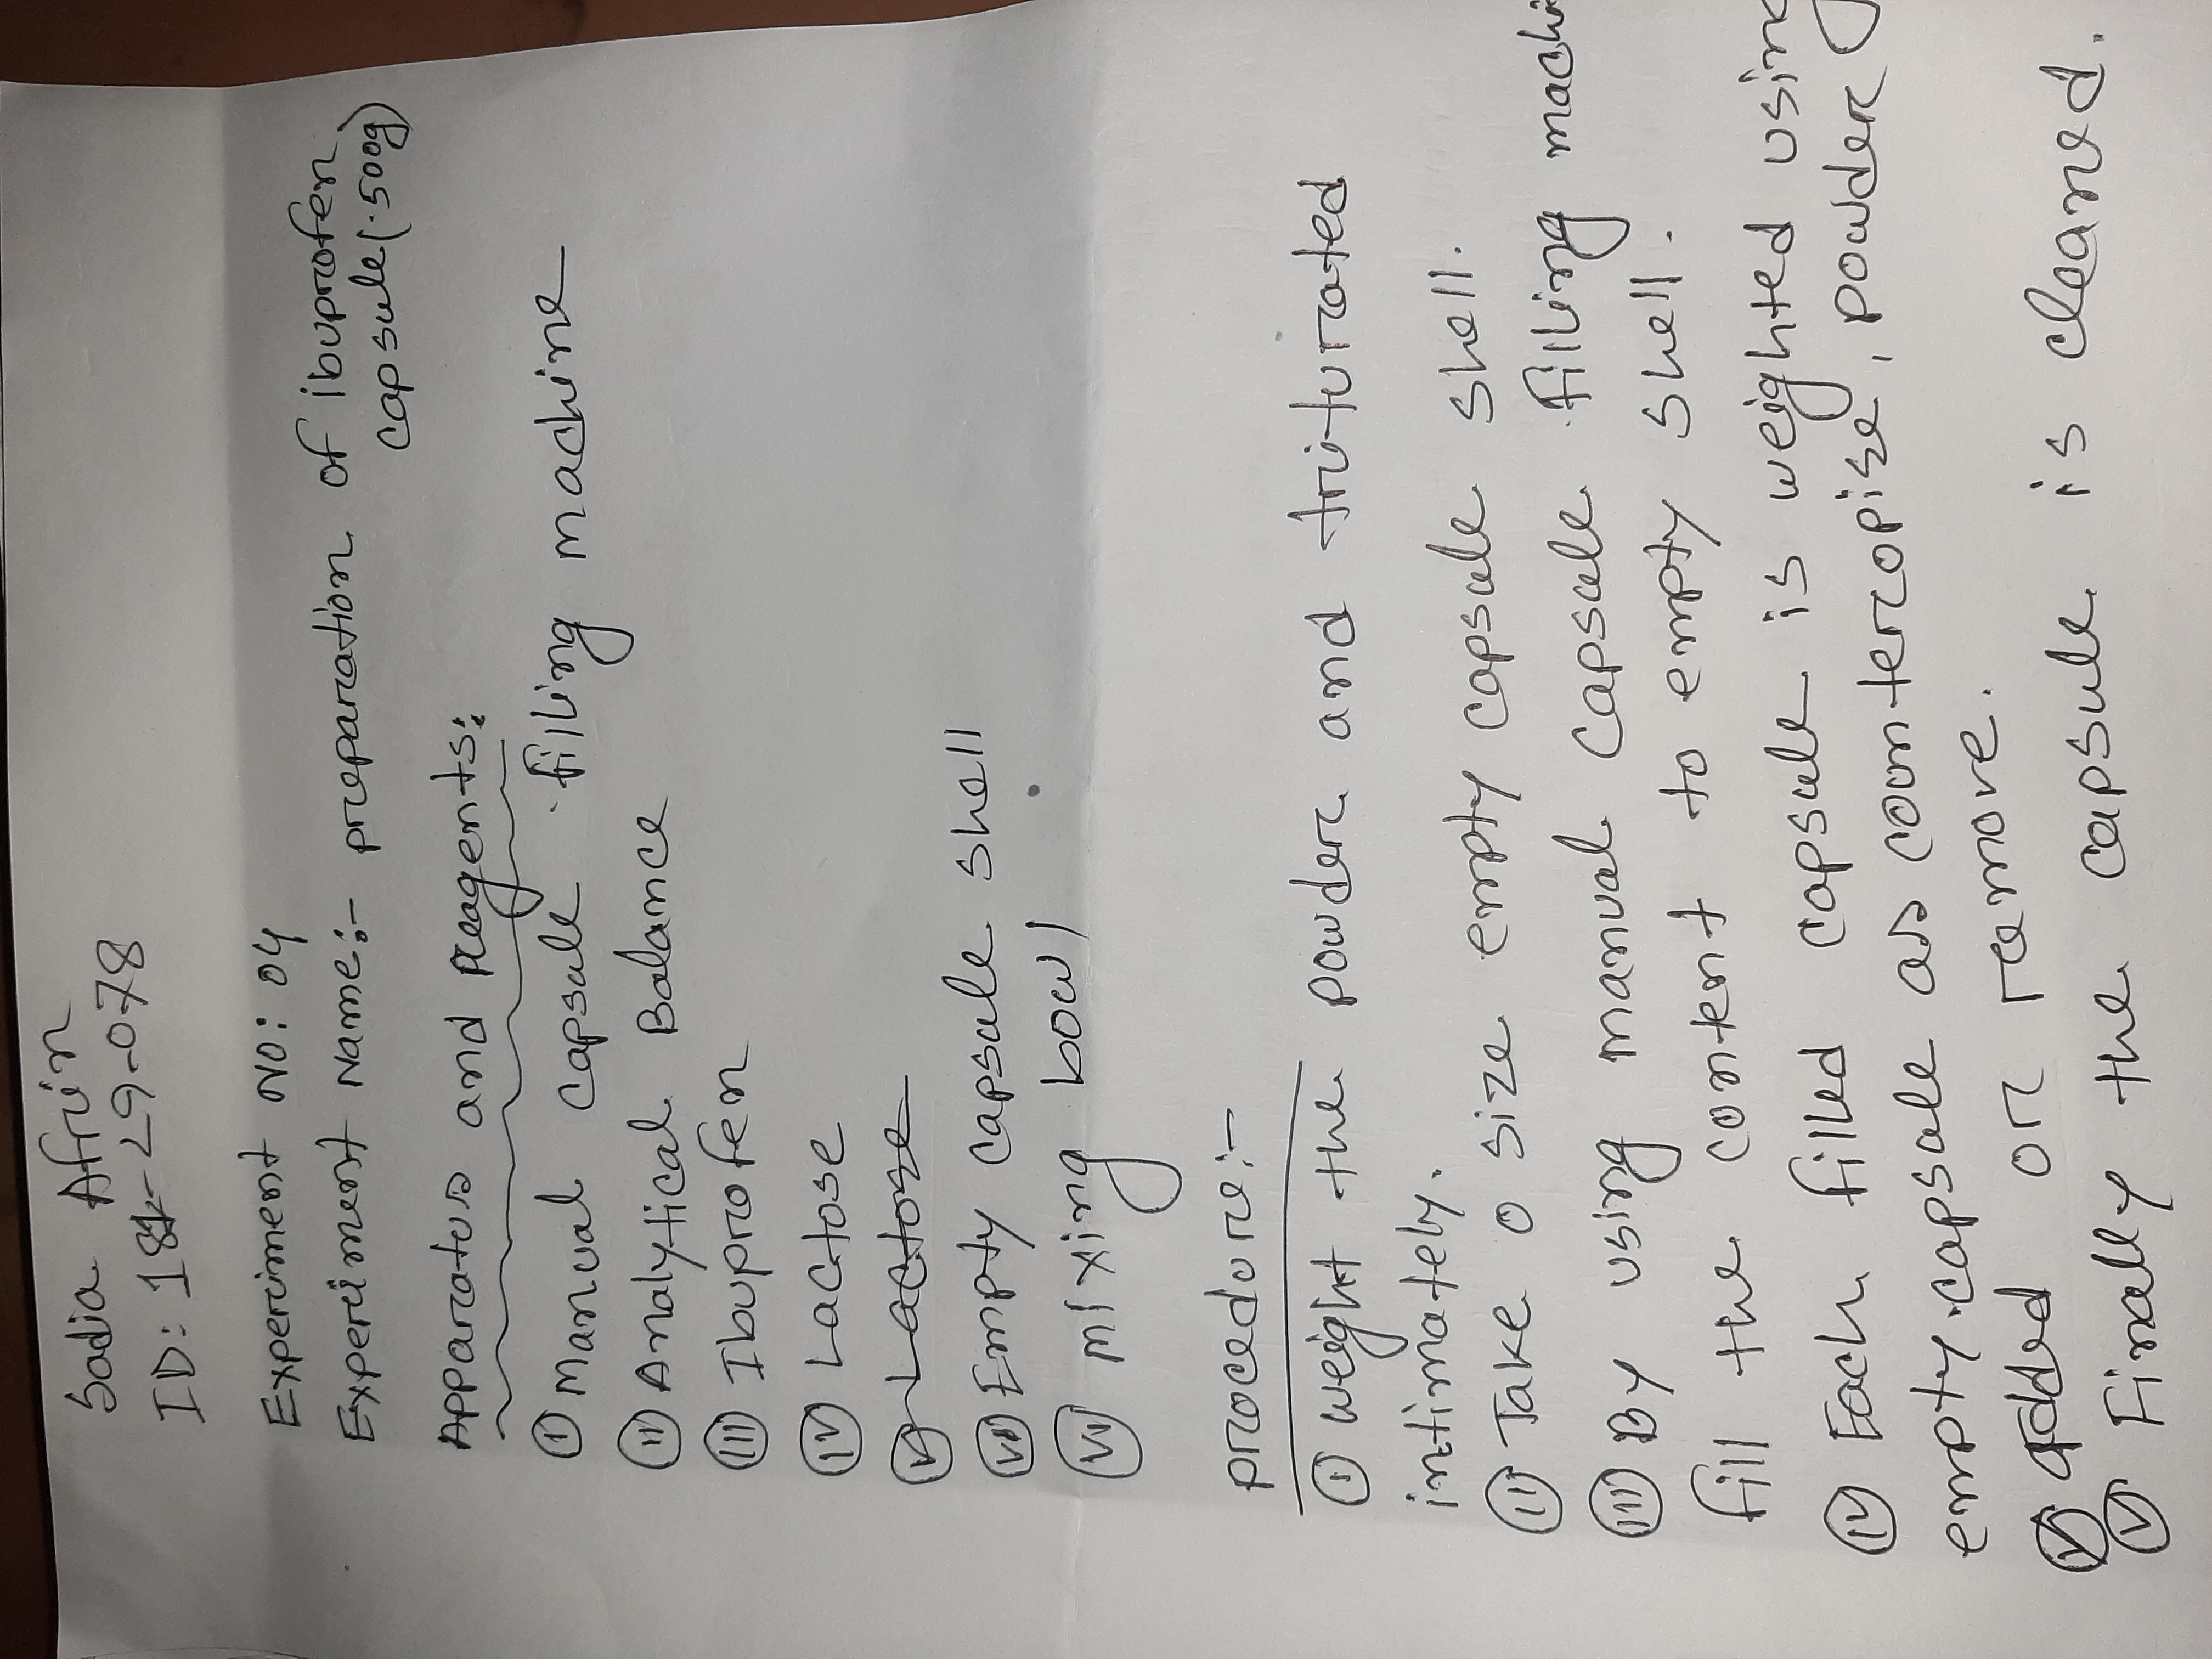 Sadia Afrin
ID: 181-29-078
Experiment NO: 04
Experiment Name:- preparation of ibuprofen
capsule (.500g)
Apparatus and Reagents:
(I) Manual capsule filling machine
(II) Analytical Balance
(III) Ibuprofen
(IV) Lactose
(V) Lactose
(V) Empty capsule shell
(VI) mixing bowl
procedure:-
(I) weight the powder and triturated
intimately.
(II) Take 0 size empty capsule shell.
(III) By using manual capsule filling machi
fill the content to empty shell.
(IV) Each filled capsule is weighted using
empty capsule as countercopise, powder
(V) added or remove.
(V) Finally the capsule is cleaned.